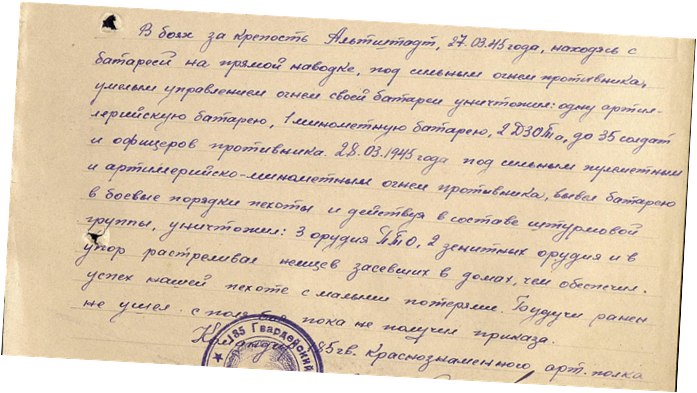 В боях за крепость Альтштадт, 27.03.45 года, находясь с
батареей на прямой наводке, под сильным огнем противника,
умелым управлением огнем своей батареи уничтожил: одну артил-
лерийскую батарею, 1 минометную батарею, 2 ДЗОТа, до 35 солдат
и офицеров противника. 28.03.1945 года под сильным пулеметным
и артиллерийско-минометным огнем противника, вывел батарею
в боевые порядки пехоты и действуя в составе штурмовой
группы, уничтожил: 3 орудия ПТО, 2 зенитных орудия и в
упор расстреливал немцев засевших в домах, чем обеспечил
успех нашей пехоте с малыми потерями. Будучи ранен
не ушел с поля боя пока не получил приказа.
85 гв. Краснознаменного арт. полка
185 Гвардейский